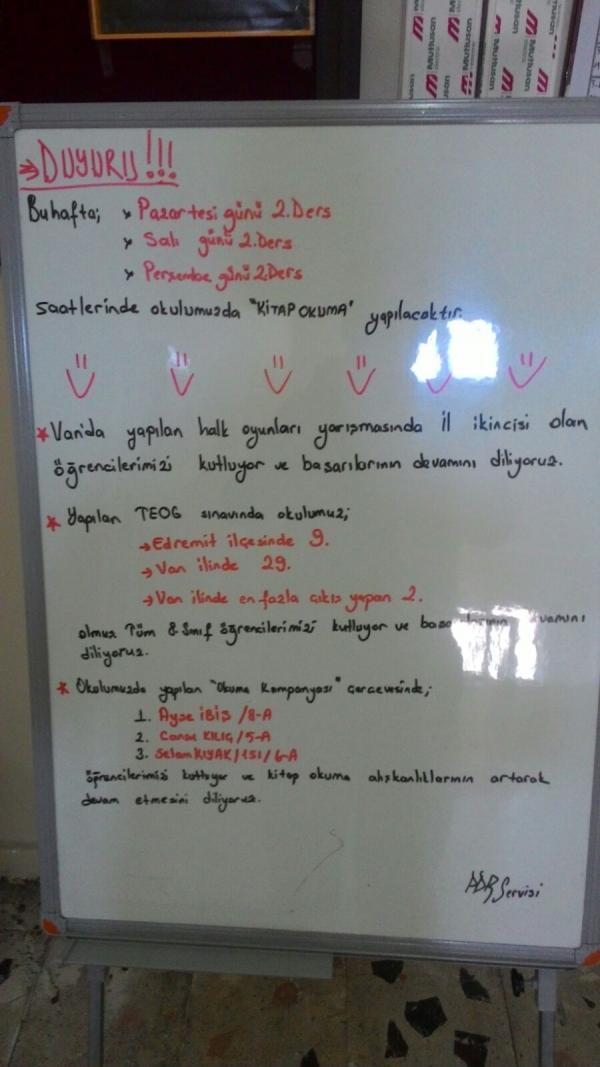 Mutlusan
Mutlusan
Mutlusan
Mutlusan
→DUYURU!!!
Bu hafta; > Pazartesi günü 2.Ders
> Salı günü 2.Ders
> Perşembe günü 2.Ders
saatlerinde okulumuzda "KİTAP OKUMA" yapılacaktır.
* Van'da yapılan halk oyunları yarışmasında il ikincisi olan
öğrencilerimizi kutluyor ve başarılarının devamını diliyoruz.
* Yapılan TEOG sınavında okulumuz;
→Edremit ilçesinde 9.
→Van ilinde 29.
→Van ilinde en fazla çıkış yapan 2.
olmuş Tüm 8.Sınıf öğrencilerimizi kutluyor ve
diliyoruz.
* Okulumuzda yapılan "Okuma Kampanyası" çerçevesinde;
1. Ayşe İBİŞ /8-A
2. Cansu KILIÇ/5-A
3. Selam KIYAK/151/6-A
öğrencilerimizi kutluyor ve kitap okuma alışkanlıklarının artarak
devam etmesini diliyoruz.
Servisi